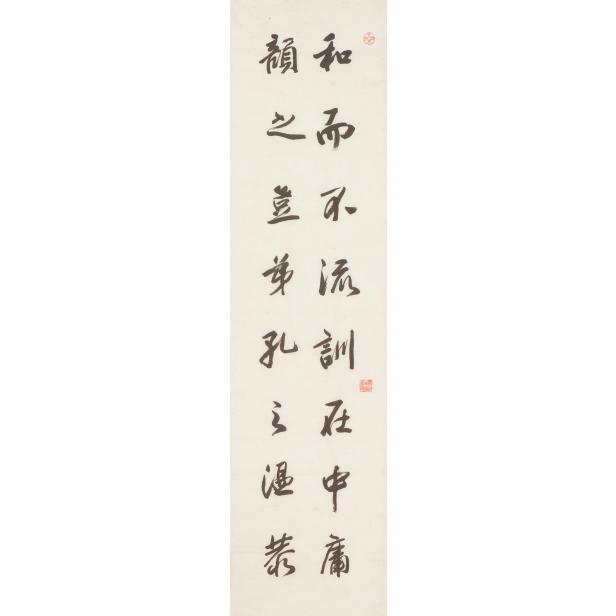 和而不流訓在中庸
顏之豈弟孔之溫恭